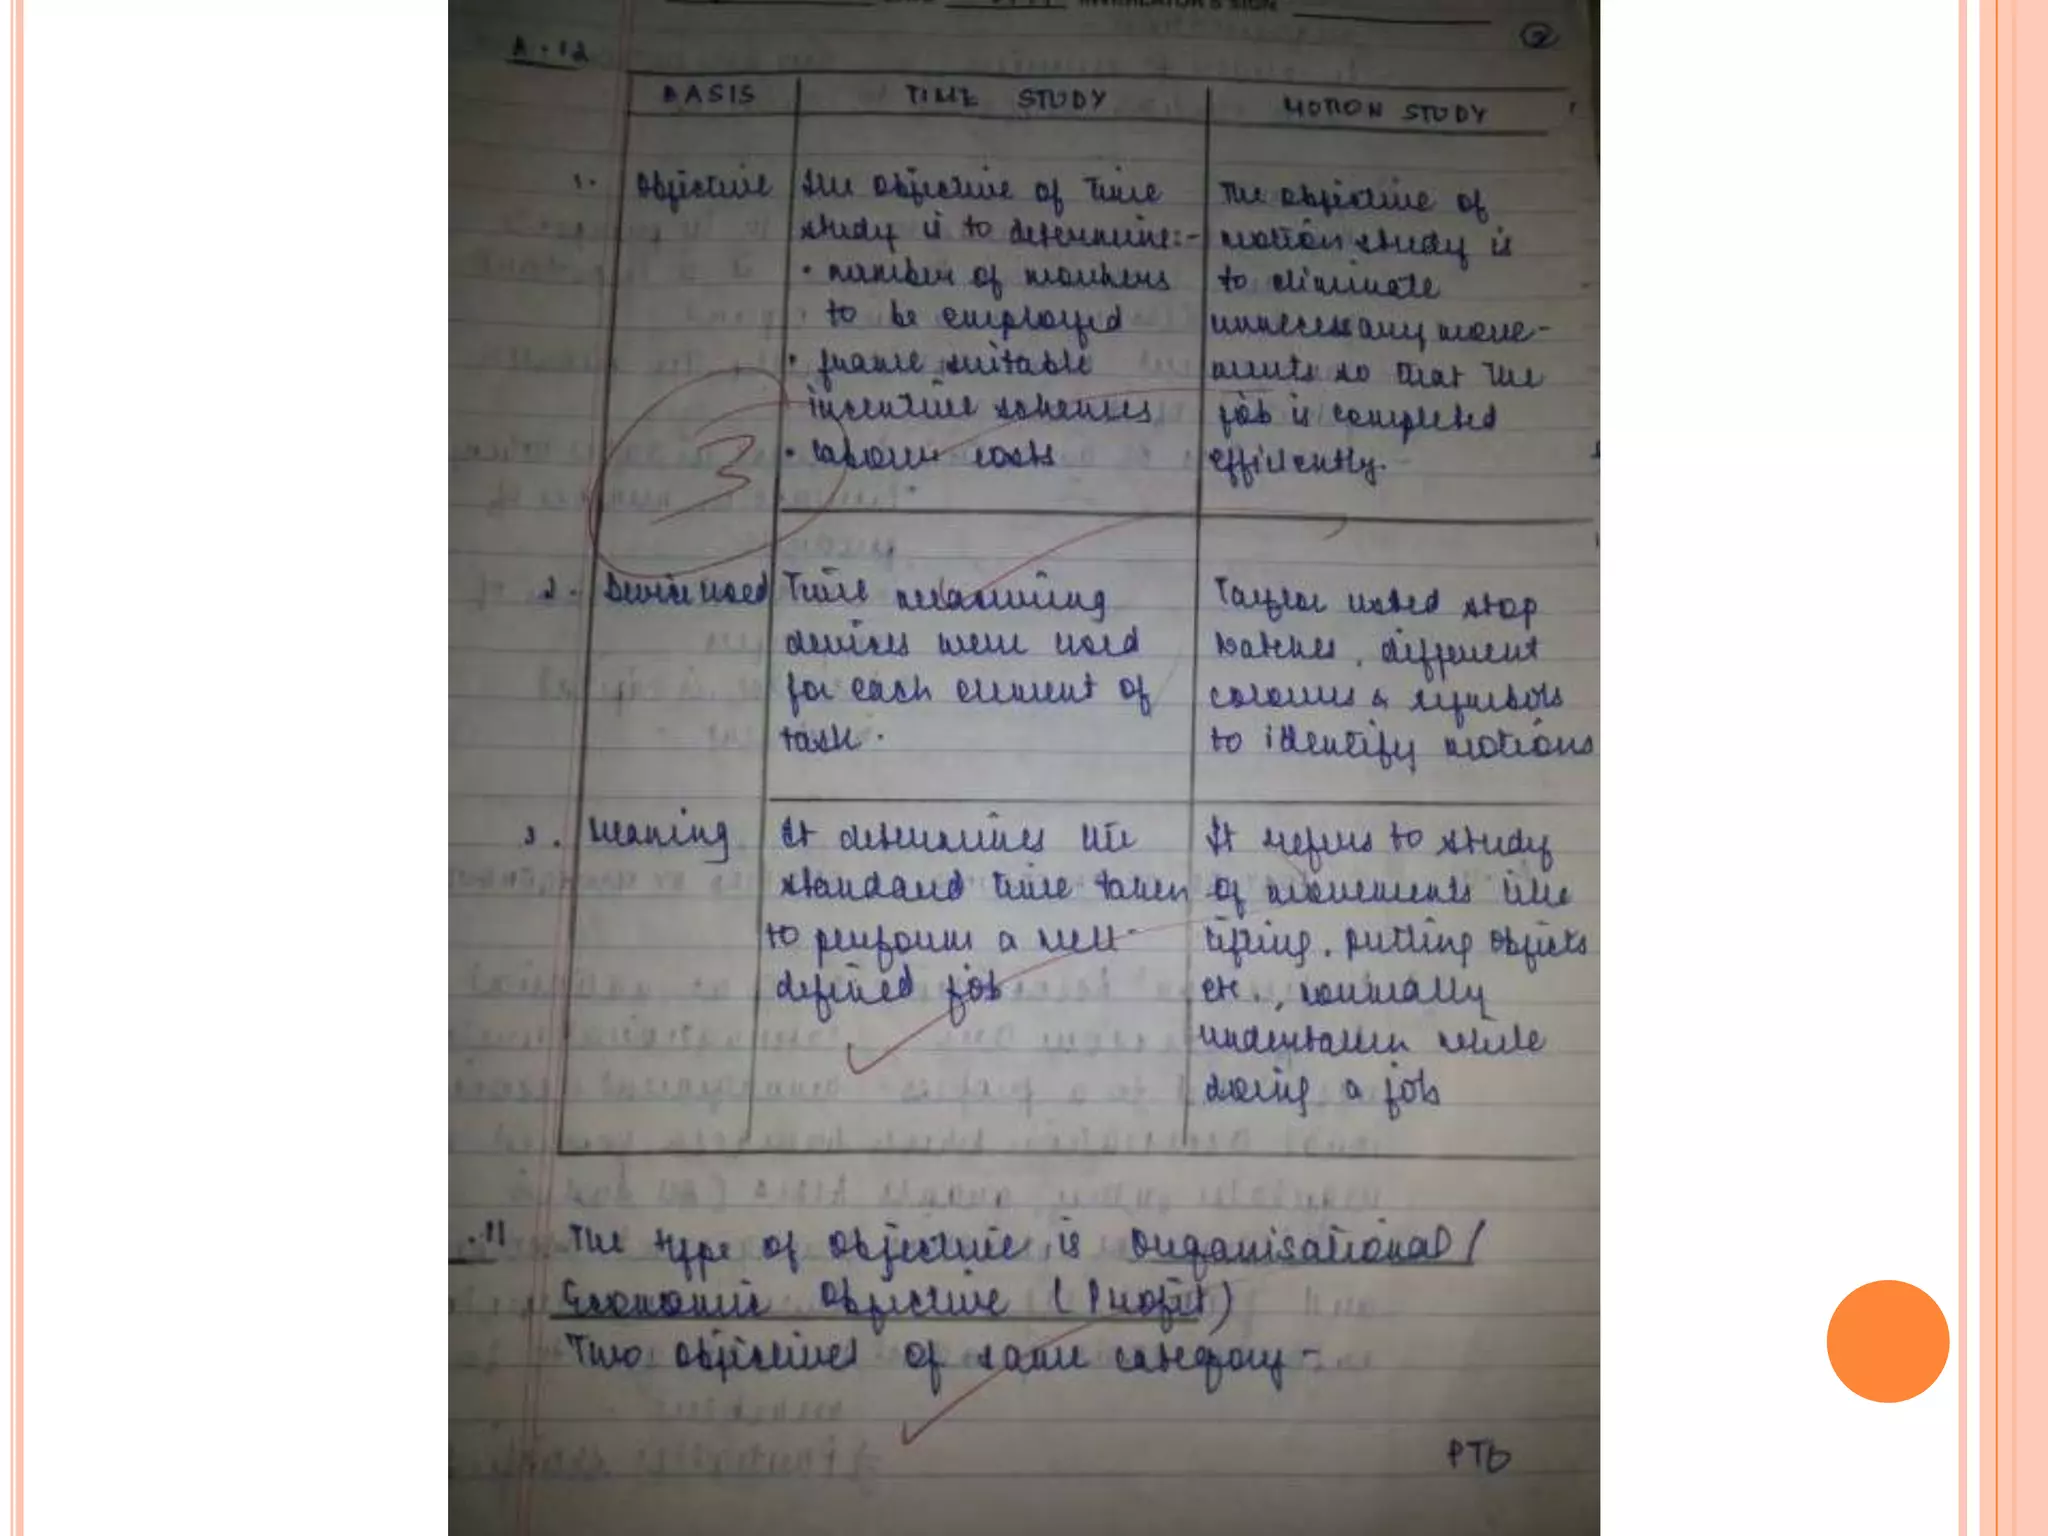 INVIGILATOR'S SIGN
2
A.12
BASIS TIME STUDY MOTION STUDY
1. Objective
The objective of time
study is to determine:-
• number of workers
to be employed
• frame suitable
incentive schemes
• labour costs
The objective of
motion study is
to eliminate
unnecessary move-
ments so that the
job is completed
efficiently.
3
2. Device used
Time measuring
devices were used
for each element of
task.
Taylor used stop
watches, different
colours & symbols
to identify motions
3. Meaning
It determines the
standard time taken
to perform a well-
defined job
It refers to study
of movements like
lifting, putting objects
etc., normally
undertaken while
doing a job
.11 The type of objective is Organisational /
Economic Objective (Profit)
Two objectives of same category -
PTO